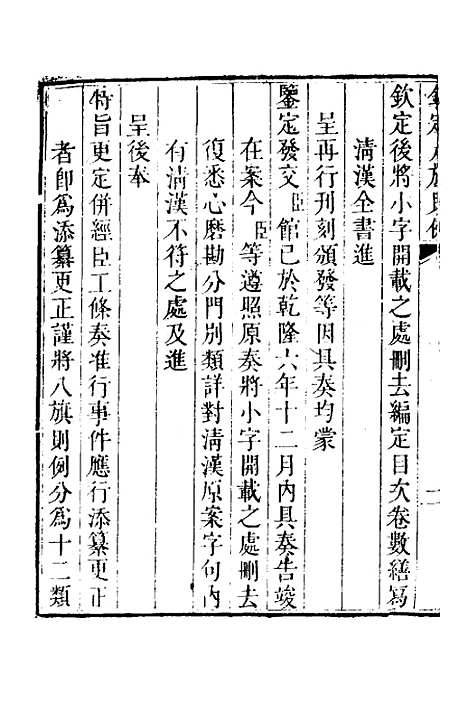 欽定八旗則例
欽定後將小字開載之處刪去編定目次卷數繕寫
清漢全書進
呈再行刊刻頒發等因具奏均蒙
鑒定發交臣館已於乾隆六年十二月內具奏告竣
在案今臣等遵照原奏將小字開載之處刪去
復悉心磨勘分門別類詳對清漢原案字句內
有清漢不符之處及進
呈後奉
特旨更定併經臣工條奏准行事件應行添纂更正
者卽爲添纂更正謹將八旗則例分爲十二類